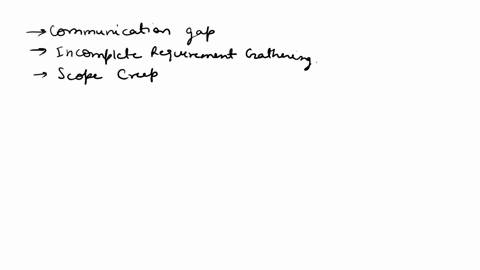 → Communication gap
→ Incomplete Requirement Gathering.
→ Scope Creep